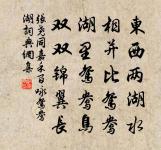 東西兩湖水
相并比鴛鴦
湖里鴛鴦鳥
双双锦翼長
張尧同嘉禾百咏鴛鴦
湖詞典網集